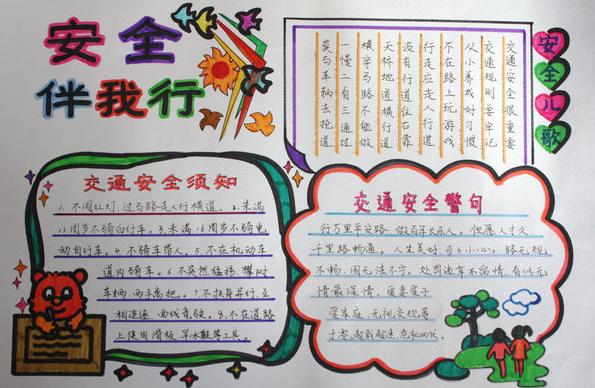 安全
伴我行
安全儿歌
交通安全很重要
交通规则要牢记
从小养成好习惯
不在路上玩游戏
行走应走人行道
没有行道往右靠
天桥地道横行道
横穿马路不能做
一慢二看三通过
莫与车辆去抢道
交通安全须知
1.不闯红灯,过马路走人行横道。2.未满
12周岁不骑自行车。3.未满16周岁不骑电
动自行车。4.不骑车带人。5.不在机动车
道内骑车。6.不突然猛拐、攀扶
车辆、两手离把。7.不扶身并行、互
相追逐、曲线竞驶。8.不在道路
上使用滑板、旱冰鞋等工具。
交通安全警句
行万里平安路,做百年长乐人。但愿人才久,
千里路畅通。人生美好,步步小心。路无规
不畅,国无法不宁。处罚违章不留情,看似无
情最深情。爱妻爱子
爱家庭,无视交规等
于零。超载越速危机四伏。